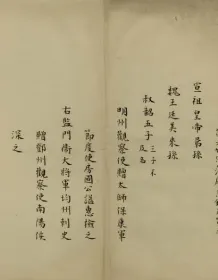 宣祖皇帝昌孫
魏王廷美裔孫
叔韶五子三子不及名
明州觀察使贈太師保康軍
節度使房國公諡惠韶之
右監門衛大將軍均州刺史
贈鄧州觀察使南陽侯
深之